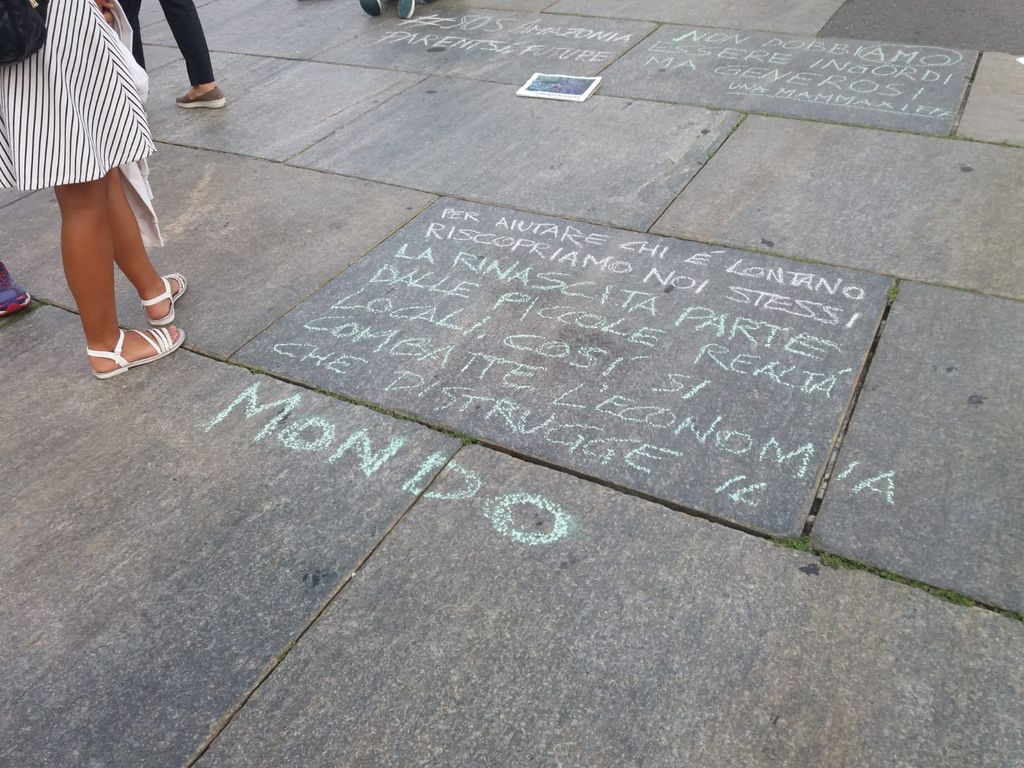 #SOS AMAZONIA
PARENTS4FUTURE
NON DOBBIAMO
ESSERE INGORDI
MA GENEROSI
UNA MAMMA X I
PER AIUTARE CHI É LONTANO
RISCOPRIAMO NOI STESSI
LA RINASCITA PARTE
DALLE PICCOLE REALTÁ
LOCALI COSÍ SI
COMBATTE L'ECONOMIA
CHE DISTRUGGE IL
MONDO